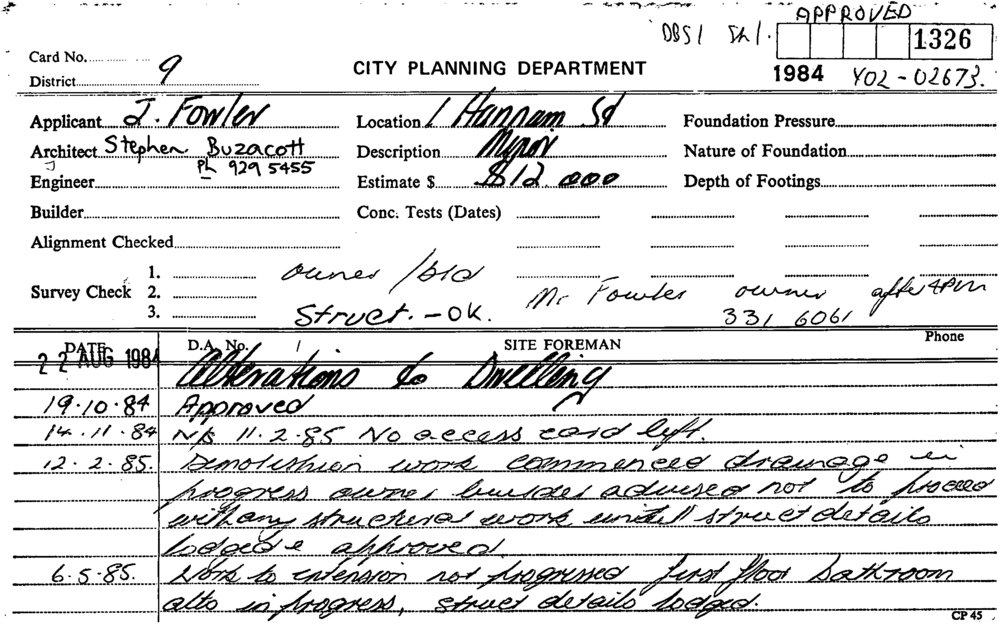 APPROVED
DBS1 Sh1. 1326
Card No.
District 9 CITY PLANNING DEPARTMENT 1984 Y02-02673.
Applicant J. Fowler Location 1 Hannam St Foundation Pressure
Architect Stephen J Buzacott Description Minor Nature of Foundation
Ph 929 5455
Engineer Estimate $ $12 000 Depth of Footings
Builder Conc. Tests (Dates)
Alignment Checked
1. owner / bld
Survey Check 2. Mr Fowler owner after 4pm
3. Struct. - OK. 331 6061
DATE D.A. No. SITE FOREMAN Phone
22 AUG 1984 Alterations to Dwelling
19.10.84 Approved
14.11.84 N/S 11.2.85 No access card left.
12.2.85. Demolishion work commenced drainage in
progress owner builder advised not to proceed
with any structural work untill struct details
lodged & approved.
6.5.85. Work to extension not progressed first floor bathroom
alts in progress, struct details lodged.
CP 45